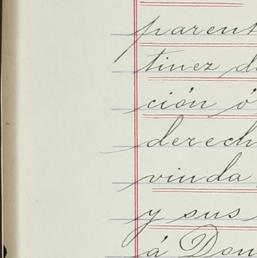 parent
tinez d
ción ó
derech
viuda
y sus
á Don